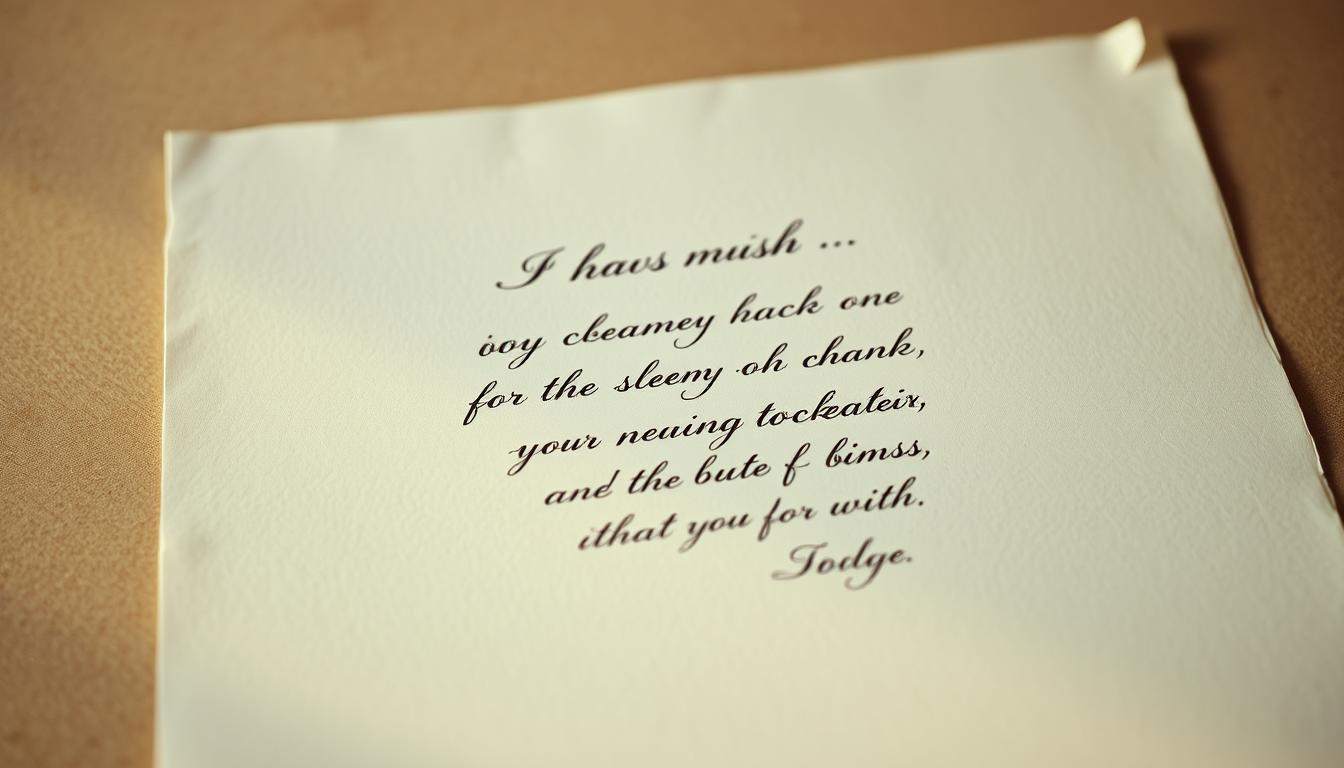 I havs muish ...
ooy cbeamey hack one
for the sleeny oh chank,
your neuing tockeateix,
and the bute f bimss,
ithat you for with.
Todge.